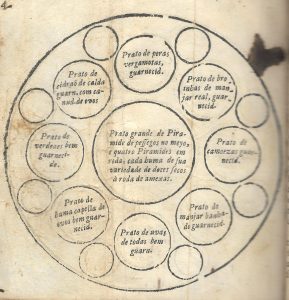 Prato de peras
vergamotas,
guarnecid.
Prato de bro-
manjar real, guar-
necid.
Prato de
camoezas guar-
necid.
Prato de
manjar
guarnecid.
Prato de uvas
de todas bem
guarn.
Prato de
huma capella de
ovos bem guar-
necid.
Prato de
verdeaes bem
guarneci-
do.
Prato de
cidraõ de calda
guarn. com ca-
nud. de ovos
Prato grande de Pira-
mide de pessegos no meyo,
e quatro Piramides em
roda, cada huma de sua
variedade de doces secos
á roda de amexas.